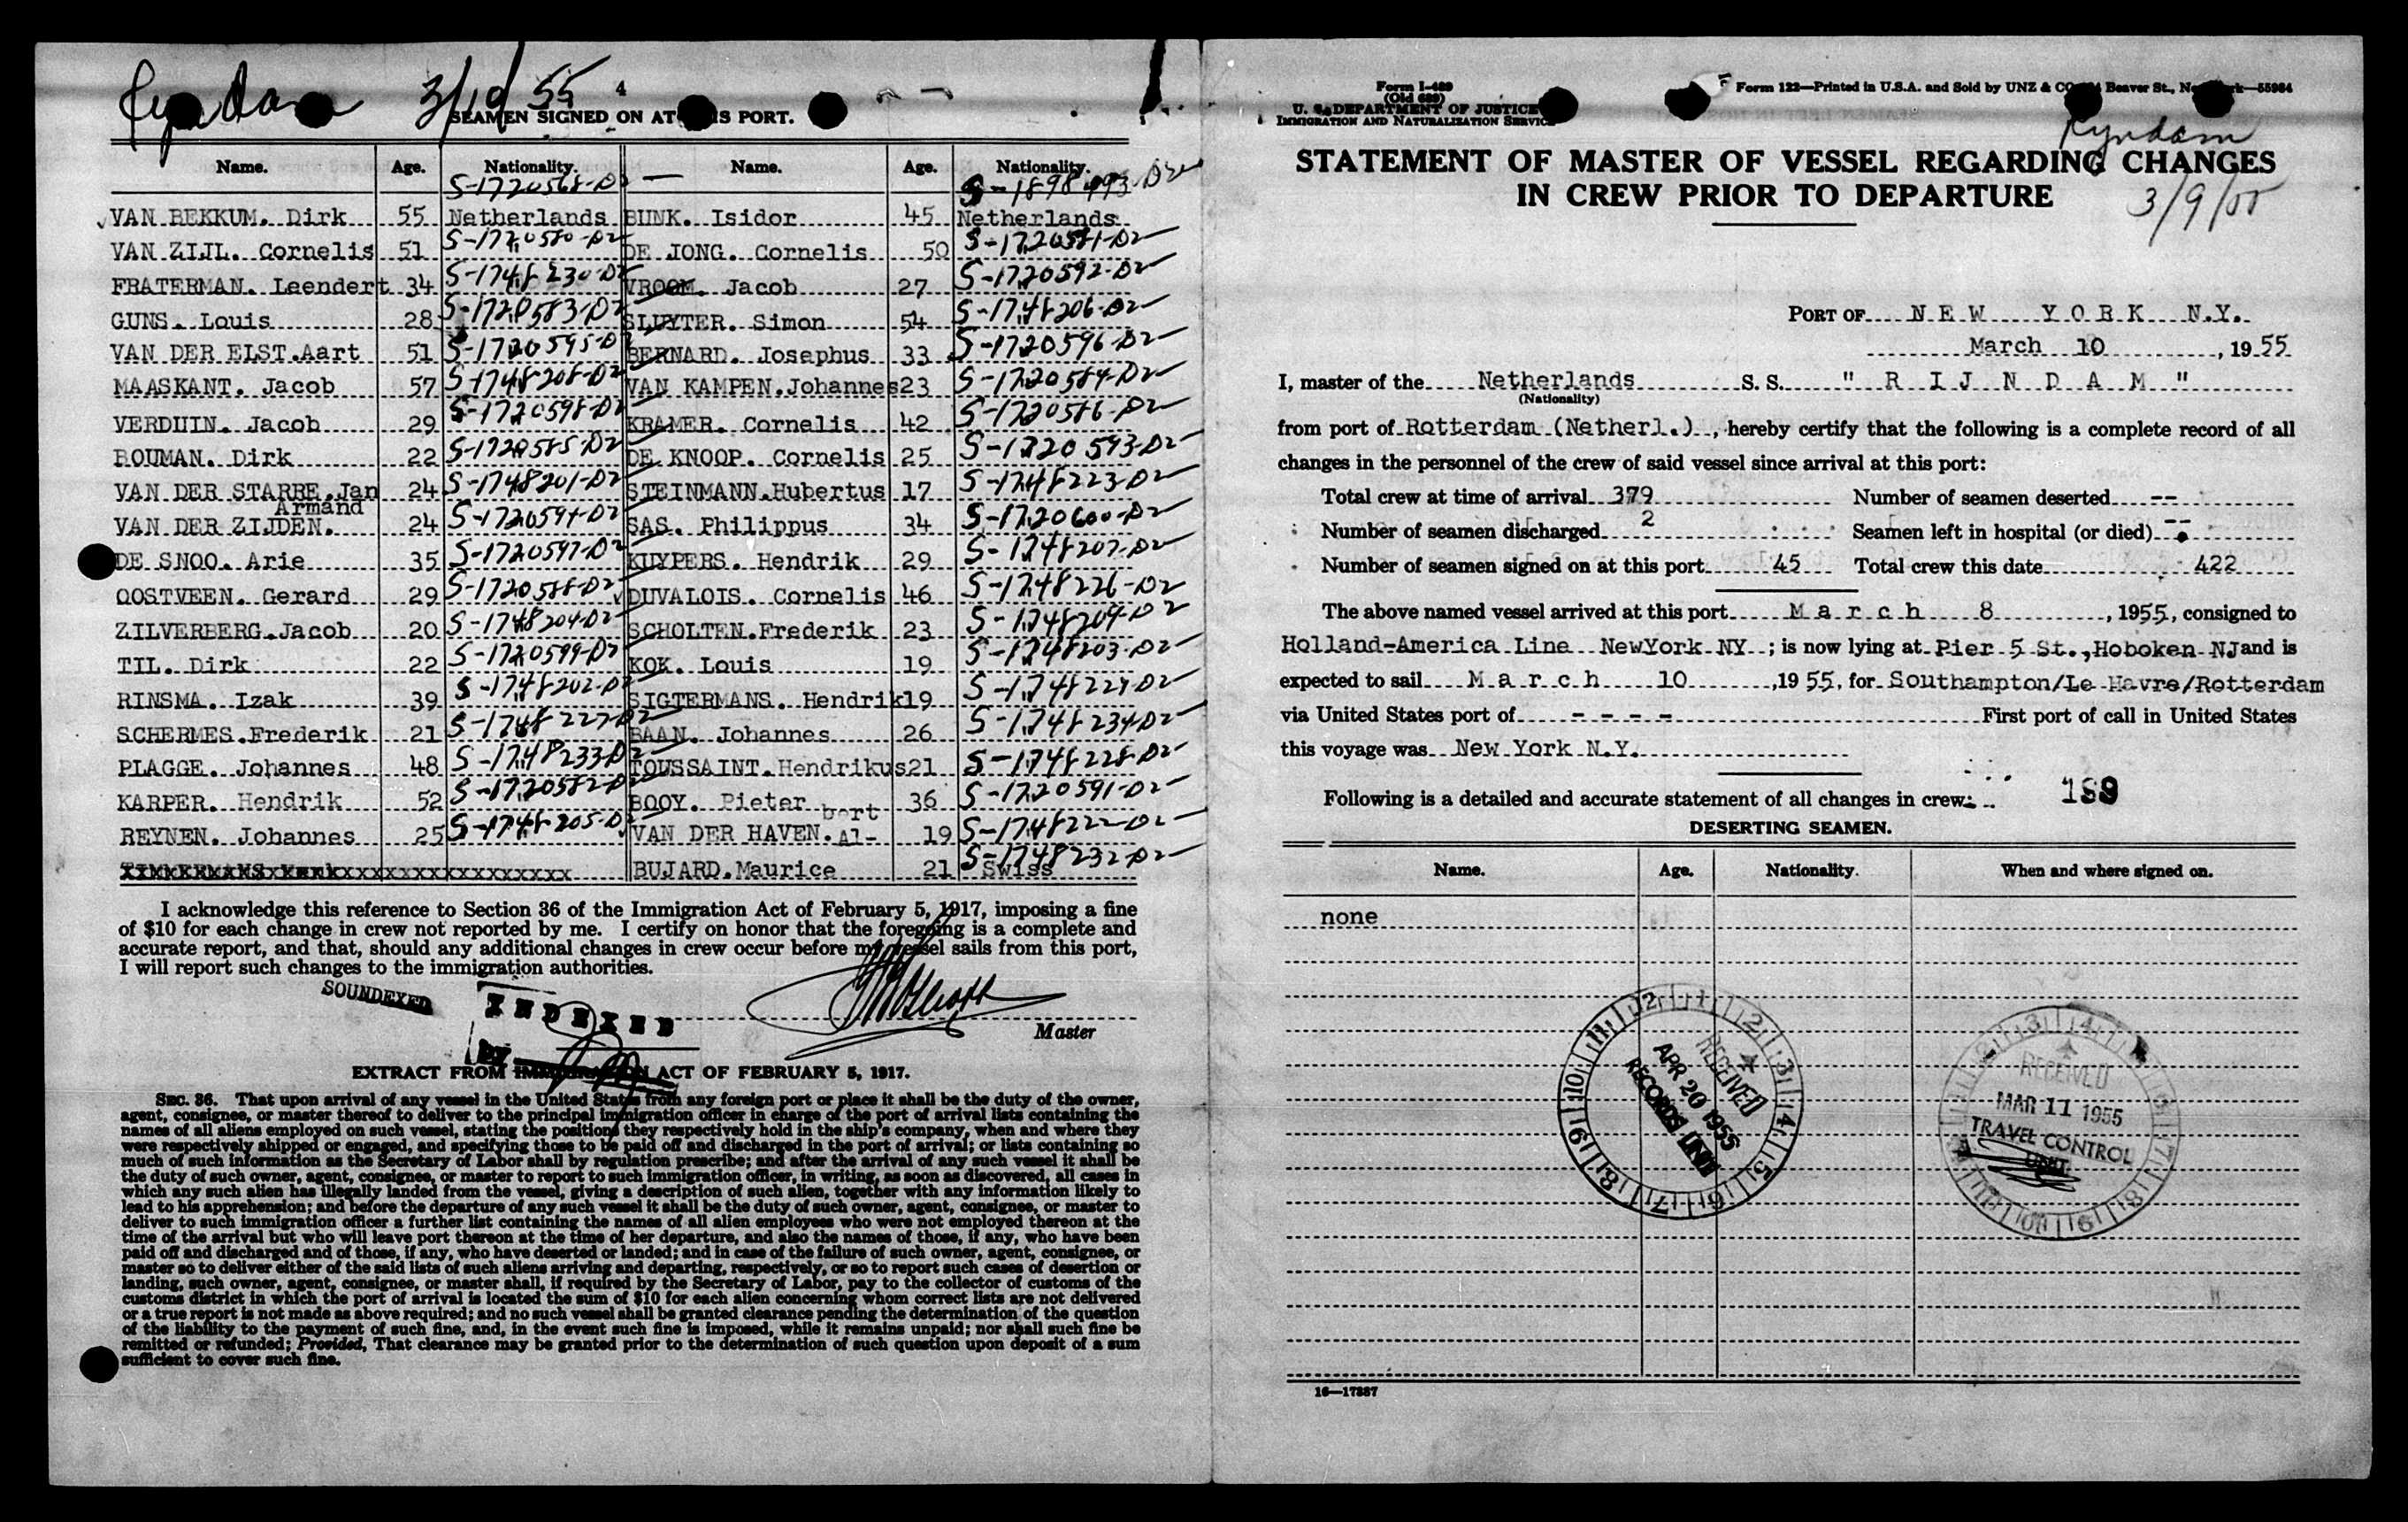 Ryndam 3/10/55
4
SEAMEN SIGNED ON AT THIS PORT.
Name. Age. Nationality. Name. Age. Nationality.
S-1720568-D2 S-1898493-D2
VAN BEKKUM. Dirk 55 Netherlands BUNK. Isidor 45 Netherlands
S-1720580-D2 S-1720581-D2
VAN ZIJL. Cornelis 51 DE JONG. Cornelis 50
S-1748230-D2 S-1720592-D2
FRATERMAN. Leendert 34 VROOM. Jacob 27
S-1720583-D2 S-1748206-D2
GUNS. Louis 28 SLUYTER. Simon 54
S-1720595-D2 S-1720596-D2
VAN DER ELST. Aart 51 BERNARD. Josephus 33
S-1748208-D2 S-1720584-D2
MAASKANT. Jacob 57 VAN KAMPEN. Johannes 23
S-1720598-D2 S-1720586-D2
VERDUIN. Jacob 29 KRAMER. Cornelis 42
S-1720585-D2 S-1720593-D2
BOUMAN. Dirk 22 DE KNOOP. Cornelis 25
S-1748201-D2 S-1748223-D2
VAN DER STARRE. Jan 24 STEINMANN. Hubertus 17
Armand S-1720600-D2
VAN DER ZIJDEN. 24 SAS. Philippus 34
S-1720597-D2 S-1748207-D2
DE SNOO. Arie 35 KUYPERS. Hendrik 29
S-1720588-D2 S-1748226-D2
OOSTVEEN. Gerard 29 DUVALOIS. Cornelis 46
S-1748204-D2 S-1748209-D2
ZILVERBERG. Jacob 20 SCHOLTEN. Frederik 23
S-1720599-D2 S-1748203-D2
TIL. Dirk 22 KOK. Louis 19
S-1748202-D2 S-1748229-D2
RINSMA. Izak 39 SIGTERMANS. Hendrik 19
S-1748227-D2 S-1748234-D2
SCHERMES. Frederik 21 BAAN. Johannes 26
S-1748233-D2 S-1748228-D2
PLAGGE. Johannes 48 TOUSSAINT. Hendrikus 21
S-1720582-D2 S-1720591-D2
KARPER. Hendrik 52 BOOY. Pieter 36
S-1748205-D2 bert S-1748222-D2
REYNEN. Johannes 25 VAN DER HAVEN. Al- 19
S-1748232-D2
BUJARD. Maurice 21 Swiss
I acknowledge this reference to Section 36 of the Immigration Act of February 5, 1917, imposing a fine
of $10 for each change in crew not reported by me. I certify on honor that the foregoing is a complete and
accurate report, and that, should any additional changes in crew occur before my vessel sails from this port,
I will report such changes to the immigration authorities.
SOUNDEXED
INDEXED
BY
Master
EXTRACT FROM IMMIGRATION ACT OF FEBRUARY 5, 1917.
SEC. 36. That upon arrival of any vessel in the United States from any foreign port or place it shall be the duty of the owner,
agent, consignee, or master thereof to deliver to the principal immigration officer in charge of the port of arrival lists containing the
names of all aliens employed on such vessel, stating the positions they respectively hold in the ship's company, when and where they
were respectively shipped or engaged, and specifying those to be paid off and discharged in the port of arrival; or lists containing so
much of such information as the Secretary of Labor shall by regulation prescribe; and after the arrival of any such vessel it shall be
the duty of such owner, agent, consignee, or master to report to such immigration officer, in writing, as soon as discovered, all cases in
which any such alien has illegally landed from the vessel, giving a description of such alien, together with any information likely to
lead to his apprehension; and before the departure of any such vessel it shall be the duty of such owner, agent, consignee, or master to
deliver to such immigration officer a further list containing the names of all alien employees who were not employed thereon at the
time of the arrival but who will leave port thereon at the time of her departure, and also the names of those, if any, who have been
paid off and discharged and of those, if any, who have deserted or landed; and in case of the failure of such owner, agent, consignee, or
master so to deliver either of the said lists of such aliens arriving and departing, respectively, or so to report such cases of desertion or
landing, such owner, agent, consignee, or master shall, if required by the Secretary of Labor, pay to the collector of customs of the
customs district in which the port of arrival is located the sum of $10 for each alien concerning whom correct lists are not delivered
or a true report is not made as above required; and no such vessel shall be granted clearance pending the determination of the question
of the liability to the payment of such fine, and, in the event such fine is imposed, while it remains unpaid; nor shall such fine be
remitted or refunded; Provided, That clearance may be granted prior to the determination of such question upon deposit of a sum
sufficient to cover such fine.
Form I-489
(Old 689)
U. S. DEPARTMENT OF JUSTICE
IMMIGRATION AND NATURALIZATION SERVICE
Form 122—Printed in U.S.A. and Sold by UNZ & CO. Beaver St., New York—55984
Ryndam
3/9/55
STATEMENT OF MASTER OF VESSEL REGARDING CHANGES
IN CREW PRIOR TO DEPARTURE
PORT OF NEW YORK N.Y.
March 10, 1955
I, master of the Netherlands S. S. "RIJNDAM"
(Nationality)
from port of Rotterdam (Netherl.), hereby certify that the following is a complete record of all
changes in the personnel of the crew of said vessel since arrival at this port:
Total crew at time of arrival 379 Number of seamen deserted --
Number of seamen discharged 2 Seamen left in hospital (or died) --
Number of seamen signed on at this port 45 Total crew this date 422
The above named vessel arrived at this port March 8, 1955, consigned to
Holland-America Line NewYork NY; is now lying at Pier 5 St., Hoboken NJ and is
expected to sail March 10, 1955, for Southampton/Le Havre/Rotterdam
via United States port of - - - - First port of call in United States
this voyage was New York N.Y.
189
Following is a detailed and accurate statement of all changes in crew:
DESERTING SEAMEN.
Name. Age. Nationality. When and where signed on.
none
RECEIVED
APR 20 1955
RECORDS UNIT
RECEIVED
MAR 11 1955
TRAVEL CONTROL
UNIT
16—17387